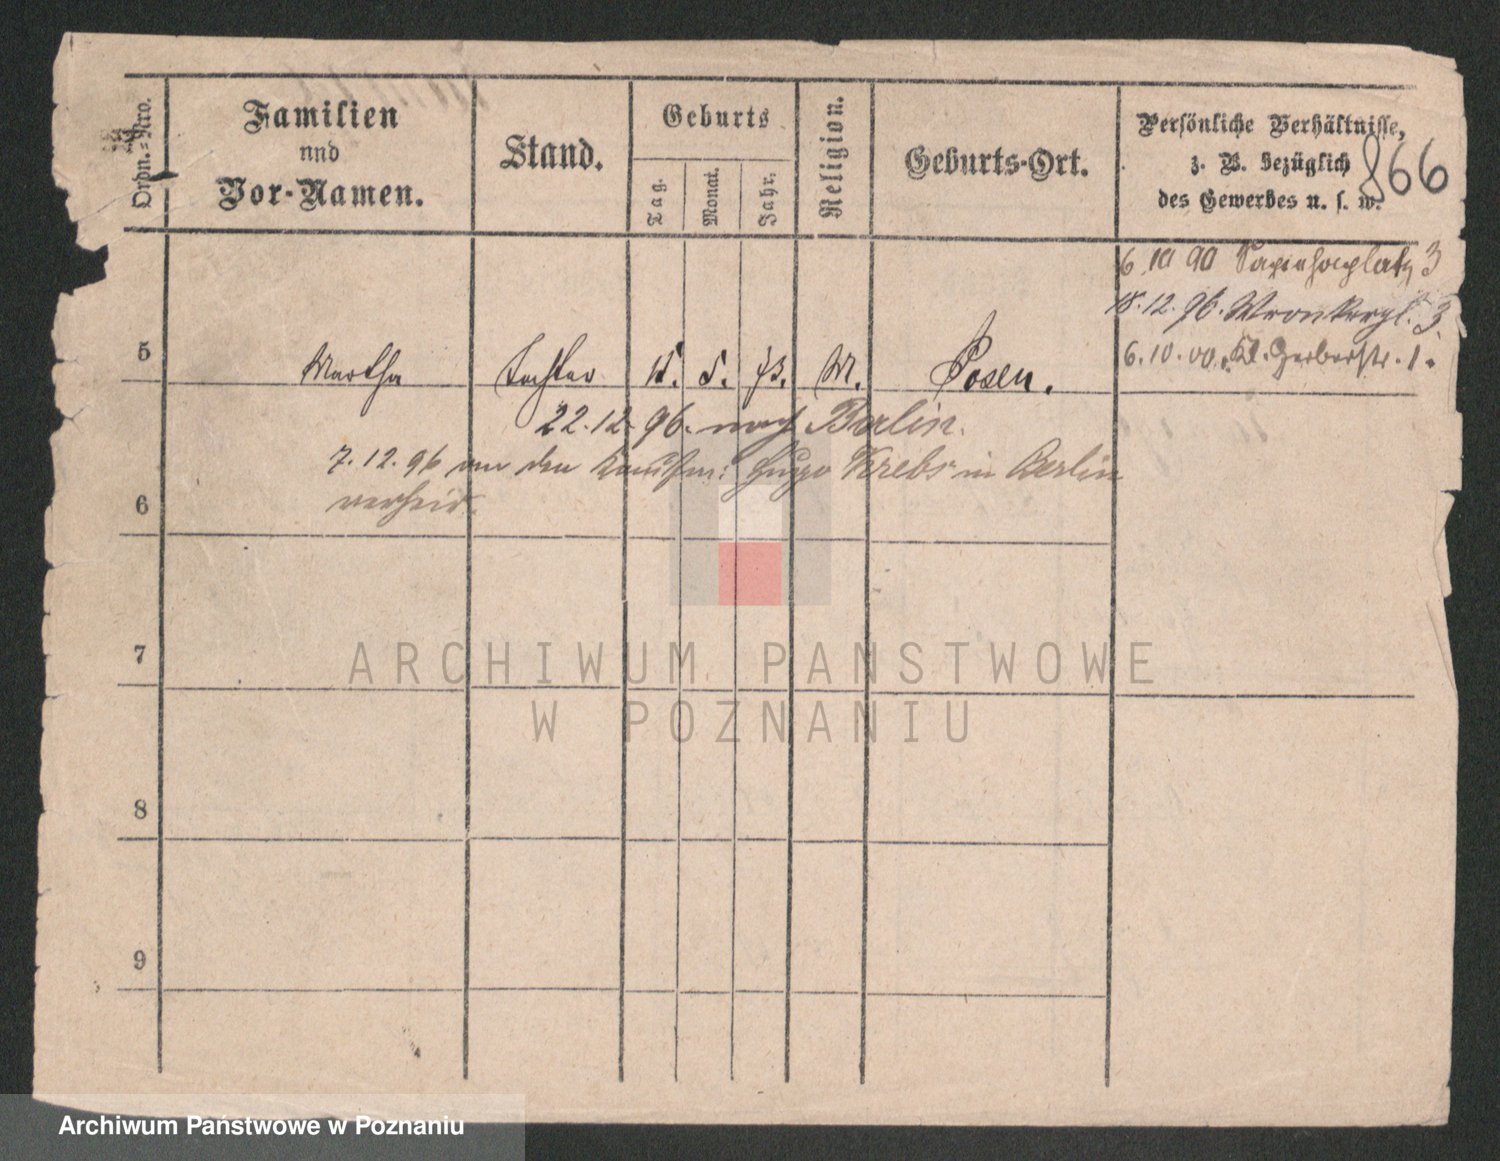 866
Ordn.-Nro.
Familien
und
Vor-Namen.
Stand.
Geburts
Tag.
Monat.
Jahr.
Religion.
Geburts-Ort.
Persönliche Verhältnisse,
z. B. bezüglich
des Gewerbes u. s. w.
6.10 90 Sapiehaplatz 3
18.12.96. Wronkerpl. 3
6.10.00. Kl. Gerberstr. 1.
5 Martha Tochter 5. M. Posen.
22.12.96. nach Berlin.
7.12.96 an den Kaufm: Hugo Krebs in Berlin
verheir.
6
7
8
9
ARCHIWUM PANSTWOWE
W POZNANIU
Archiwum Państwowe w Poznaniu